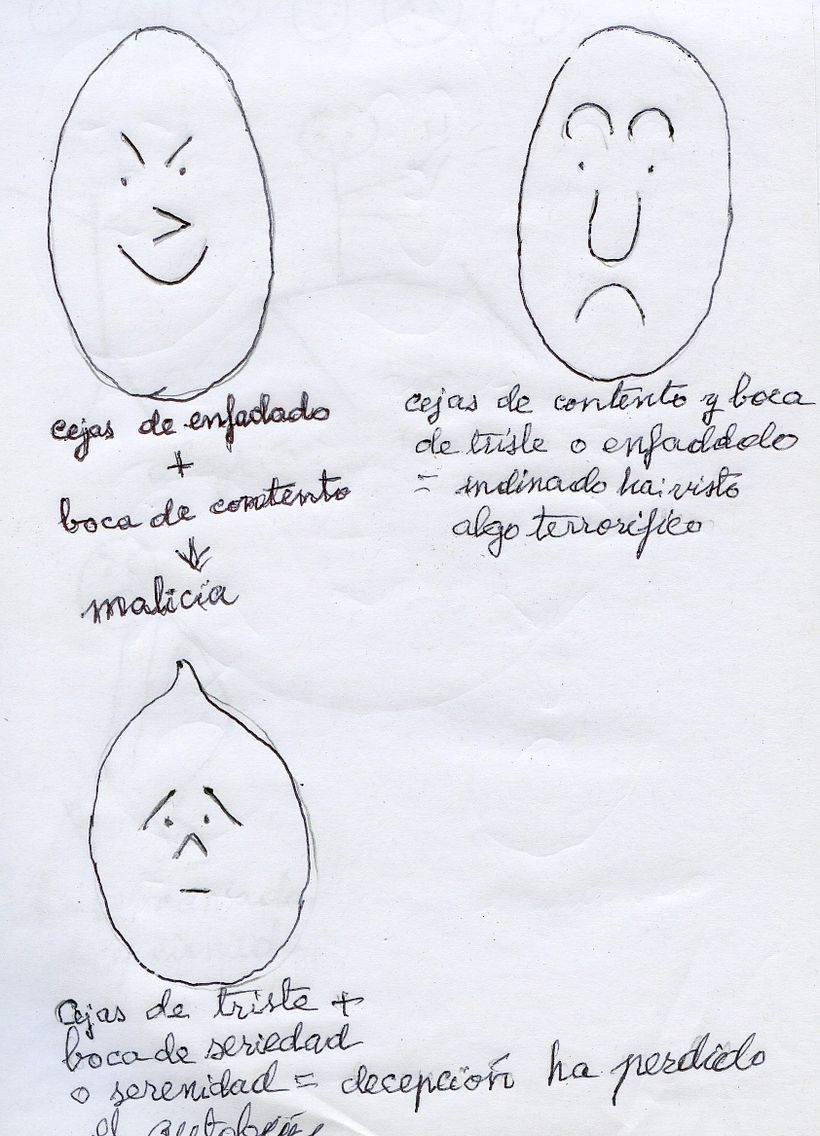 cejas de enfadado
+
boca de contento
↓
malicia
cejas de contento y boca
de triste o enfaddado
= indinado ha visto
algo terrorífico
Cejas de triste +
boca de seriedad
o serenidad = decepción ha perdido
el autobús